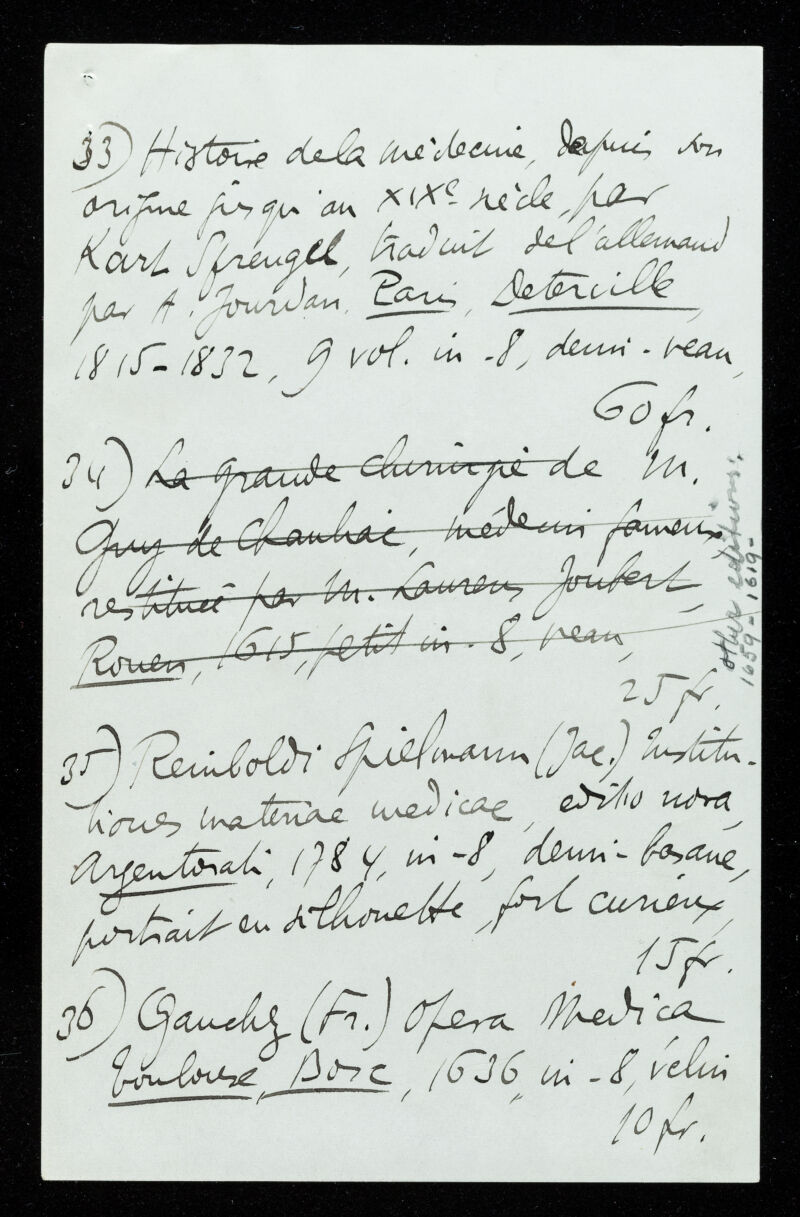 33) Histoire de la médecine, depuis son
origine jusqu'au XIXe siècle, par
Kart Sprengel, traduit de l'allemand
par A. Jourdan. Paris, Deterville,
1815-1832, 9 vol. in-8, demi-veau,
60 fr.
34) La grande chirurgie de M.
Guy de Chauliac, médecin fameux,
restituée par M. Laurens Joubert,
Rouen, 1615, petit in-8, veau,
25 fr.
other editions:
1659-1619-
35) Reinboldi Spielmann (Jac.) Institu-
tiones materiae medicae, editio nova,
Argentorati, 1784, in-8, demi-basane,
portrait en silhouette, fort curieux,
15 fr.
36) (Fr.) Opera Medica
Toulouse, Bosc, 1636, in-8, vélin
10 fr.